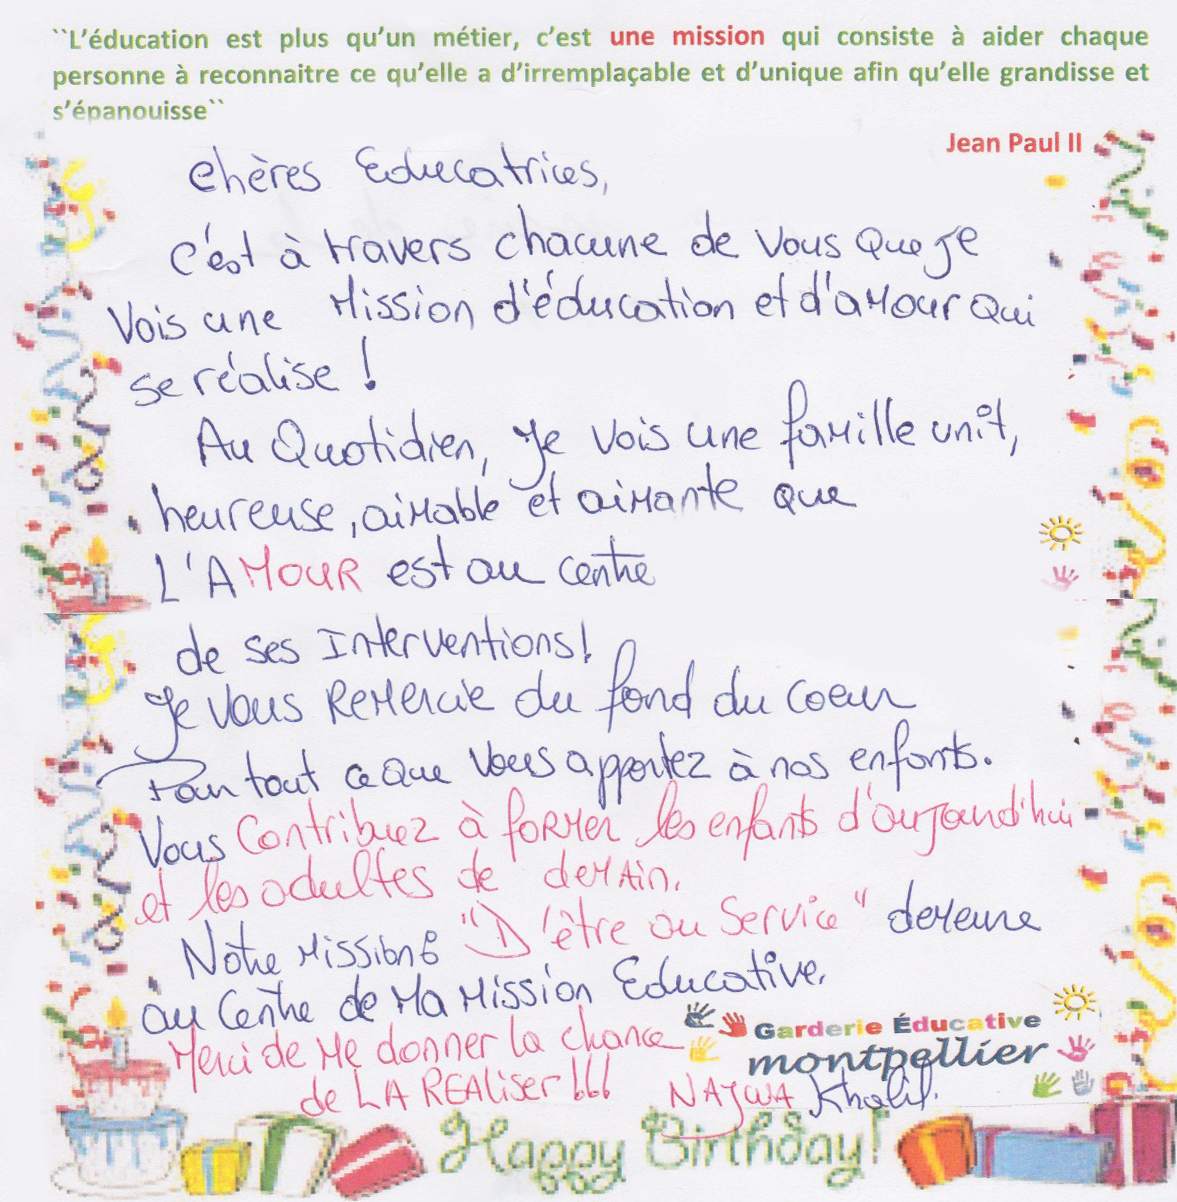 ``L'éducation est plus qu'un métier, c'est une mission qui consiste à aider chaque
personne à reconnaitre ce qu'elle a d'irremplaçable et d'unique afin qu'elle grandisse et
s'épanouisse``
Jean Paul II
Chères Educatrices,
C'est à travers chacune de vous que je
vois une Mission d'éducation et d'amour qui
se réalise !
Au Quotidien, je vois une famille unit,
heureuse, aimable et aimante que
L'AMOUR est au centre
de ses Interventions!
Je vous Remercie du fond du coeur
Pour tout ce que vous apportez à nos enfants.
Vous Contribuez à former les enfants d'aujourd'hui
et les adultes de demain.
Notre mission6 "D'être au Service" demeure
au Centre de Ma Mission Educative.
Merci de Me donner la chance
de LA REALiser !!!
NAJWA Khalil.
Garderie Éducative
montpellier
Happy Birthday!